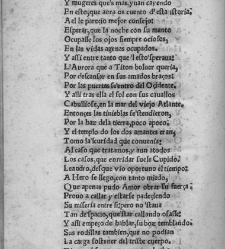 Y mugeres que mas, yuan cayendo
En este que aora os cuento d'esta istoria.
A el le parecio mejor consejo
Esperar, que la noche con su manto
Ocupasse los ojos siempre ociosos,
En las vidas agenas ocupados.
Y assi entre tanto que l'esto'speraua
L'Aurora que a Titon boluer queria,
Por descansar en sus amados braços
Por las puertas s'entro del Ocidente,
Y assi tras ella el sol con sus cauallos
Cabullose, en la mar del viejo Atlante.
Entonces las tinieblas s'estendieron,
Por la haz dela tierra, poco a poco,
Y el templo do los dos amantes eran,
Tomo la'scuridad que conuenia
Al caso que tratauan, y aun a todos
Los casos, que en cuidar suele Cupido.
Leandro, desque vio oportuno el tiempo
A Hero se llego, con tanto miedo,
Que apenas pudo Amor obrar su fuerça
Prouo a callar, y estarse padeciendo
Su miseria entre si pero no'staua
Tan despacio, que'star callando osasse
Y assi empeço de hablar, su boz temblando
Sus rodillas tambien, que no podian
La carga sostener del triste cuerpo.